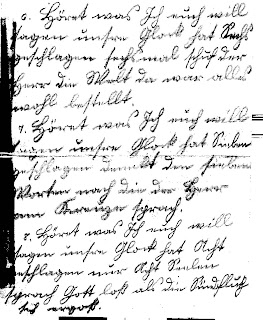 6. Höret was Ich euch will
sagen unsre Glock hat Sechs
geschlagen sechsmal schuf der
Herr die Welt da war alles
wohl bestellt.
7. Höret was Ich euch will
sagen unsre Glock hat Sieben
geschlagen denckt den sieben
Worten nach die der Herr
am Kreuze sprach.
8. Höret was Ich euch will
sagen unsre Glock hat Acht
geschlagen nur Acht Seelen
sprach Gott loß als die Sündfluth
sich ergoß.